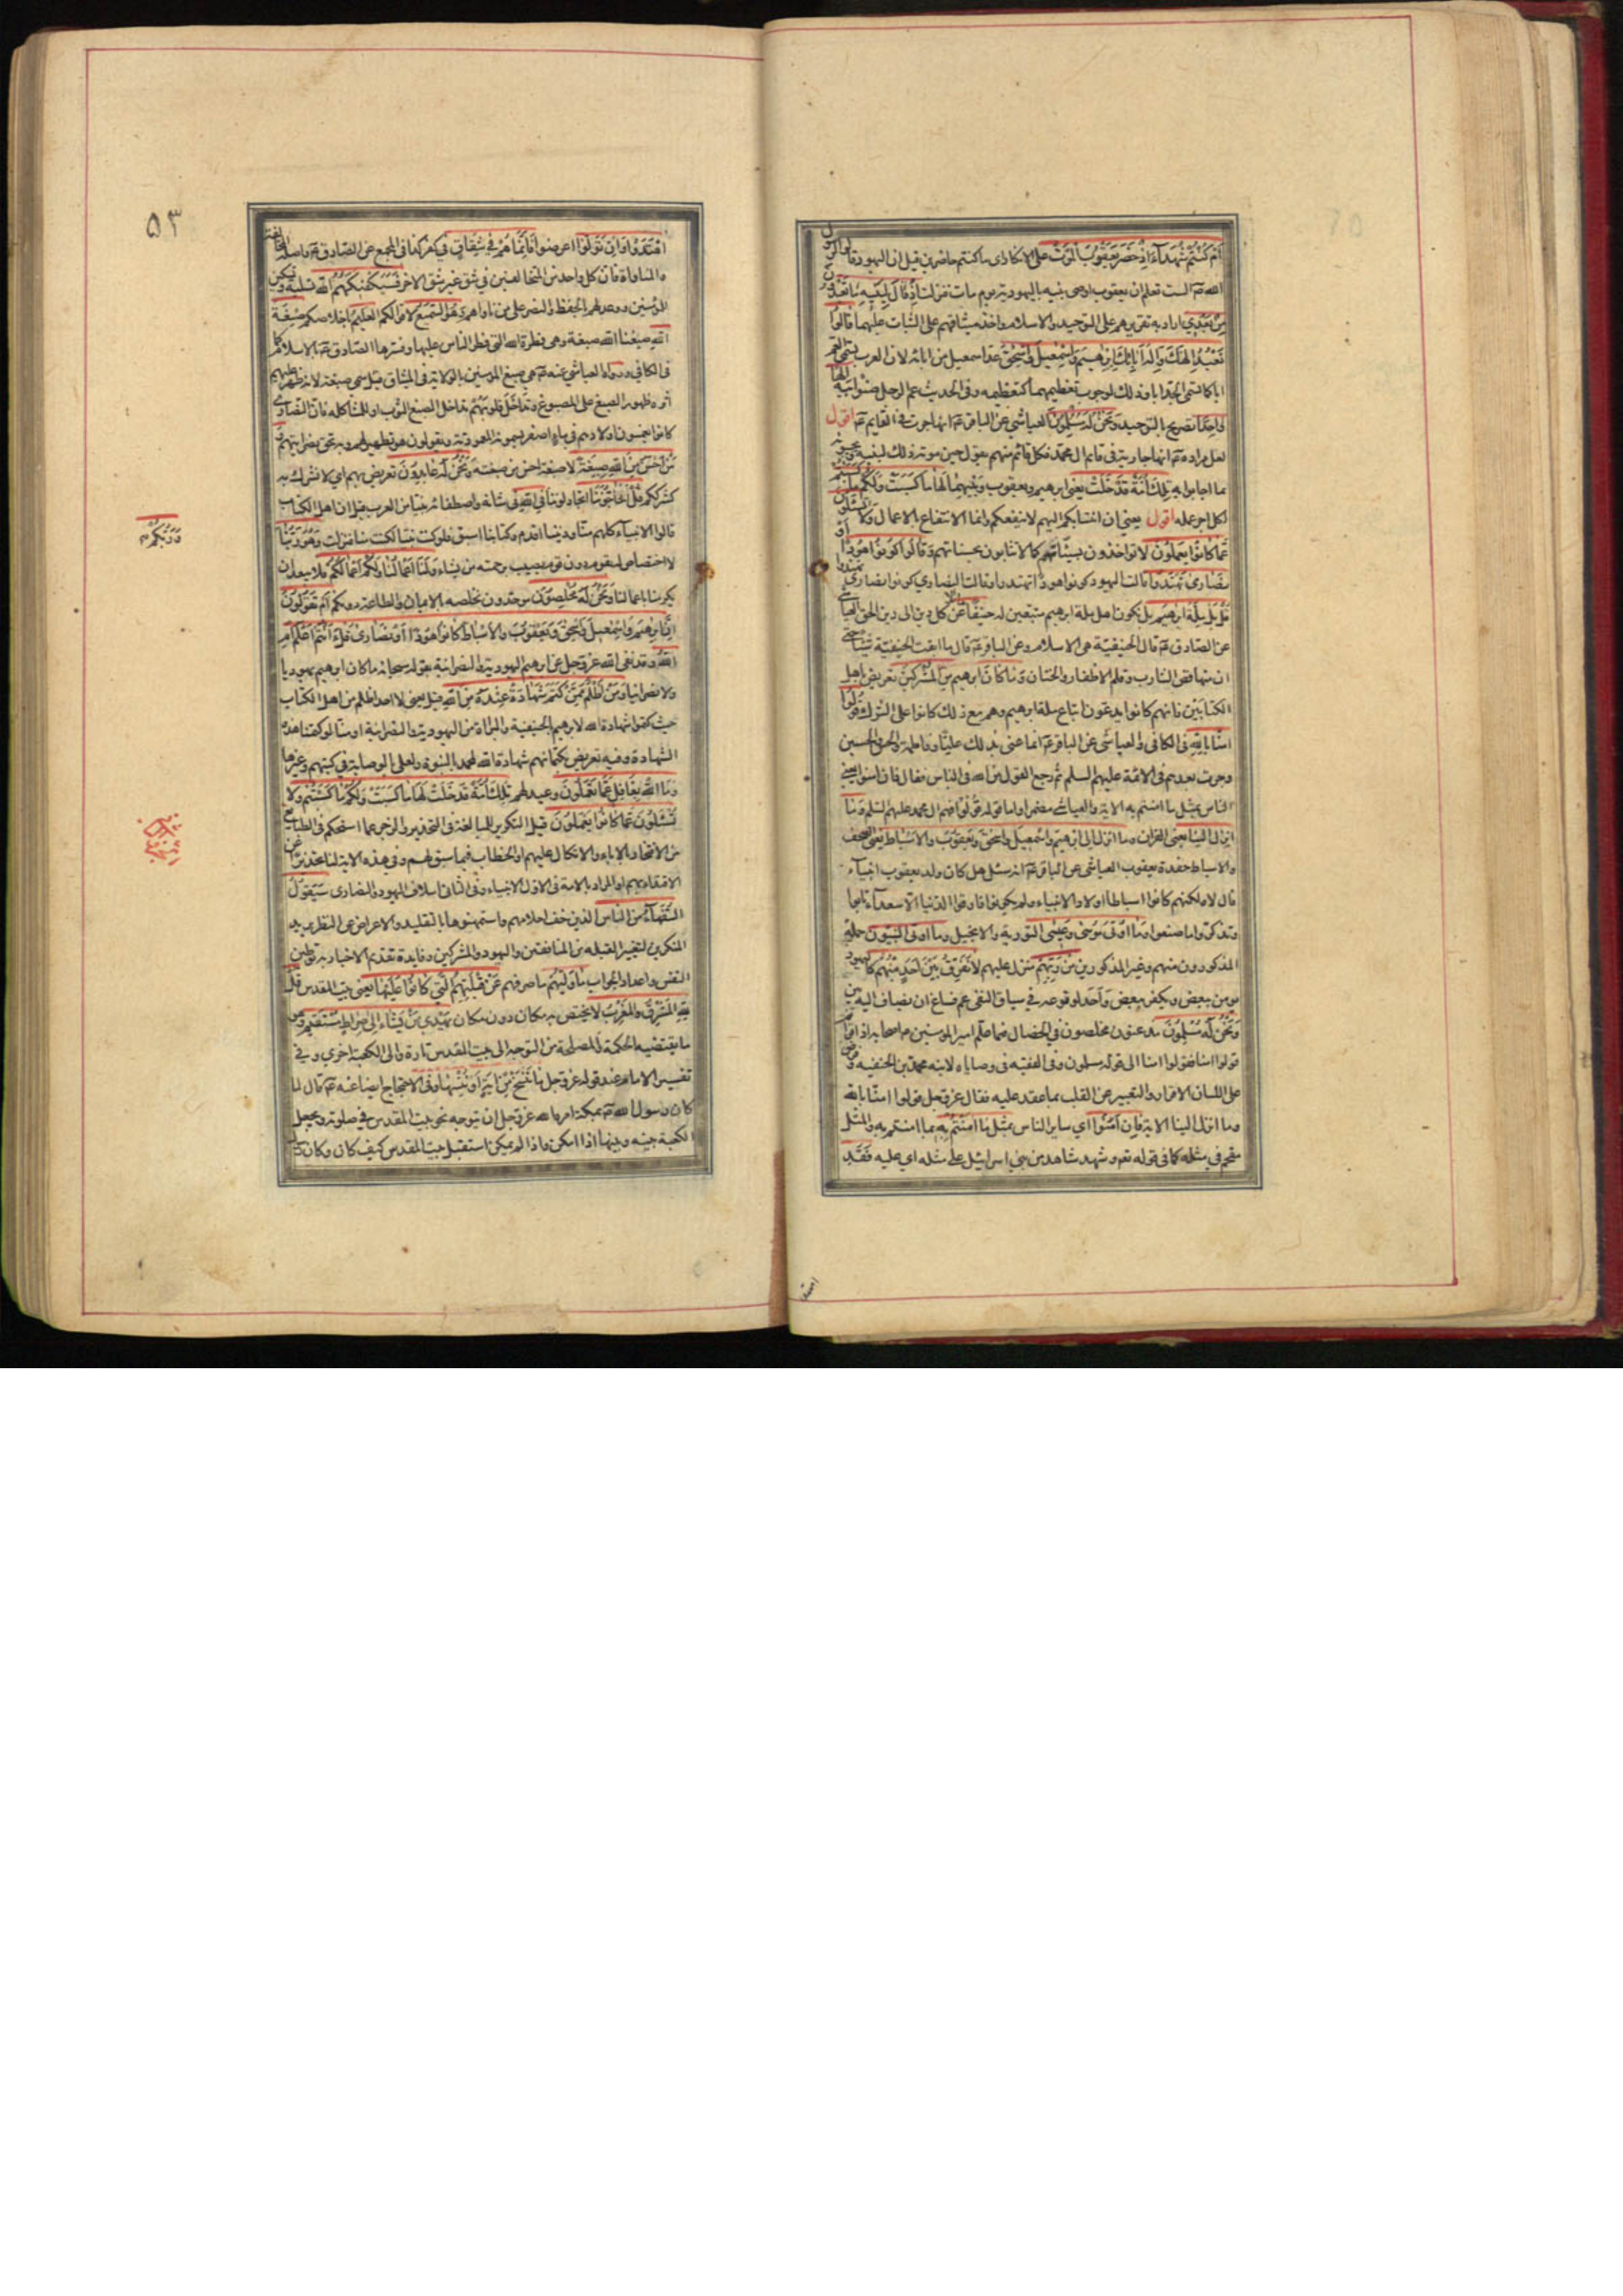 أم كنتم شهداء إذ حضر يعقوب الموت على الانكار اى ما كنتم حاضرين قيل ان اليهود قالوا لرسول
الله ص الست تعلم ان يعقوب اوصى بنيه باليهودية يوم مات فنزلت إذ قال لبنيه ما تعبدون
من بعدي اراد به تقريرهم على التوحيد والاسلام واخذ ميثاقهم على الثبات عليهما قالوا
نعبد إلهك وإله آبائك إبراهيم وإسمعيل وإسحق عدّ اسمعيل من ابائه لان العرب يسمى العم
ابا كما تسمى الجد ابا وذلك لوجوب تعظيمهما كتعظيمه وفى الحديث عم الرجل صنو ابيه إلها
واحدا تصريح بالتوحيد ونحن له مسلمون العياشي عن الباقر ع انها جرت في القايم ع اقول
لعل مراده ع انها جارية فى قايم ال محمد فكل قائم منهم يقول حين موته ذلك لبنيه ويجيبونه
بما اجابوا به تلك أمة قد خلت يعنى ابراهيم ويعقوب وبنيهما لها ما كسبت ولكم ما كسبتم
لكل اجر عمله اقول يعنى ان انتسابكم اليهم لا ينفعكم وانما الانتفاع بالاعمال ولا تسئلون
عما كانوا يعملون لا تؤاخذون بسيئاتهم كما لا تثابون بحسناتهم وقالوا كونوا هودا أو
نصارى تهتدوا قالت اليهود كونوا هودا تهتدوا وقالت النصارى كونوا نصارى تهتدوا
قل بل ملة ابرهيم بل يكون اهل ملة ابرهيم متبعين له حنيفا عن كل دين الى دين الحق العياشى
عن الصادق ع قال الحنيفية هى الاسلام وعن الباقر ع قال ما ابقت الحنيفية شيئا حتى
ان منها قص الشارب وقلم الاظفار والختان وما كان ابرهيم من المشركين تعريض باهل
الكتابين فانهم كانوا يدعون اتباع ملة ابرهيم وهم مع ذلك كانوا على الشرك قولوا
آمنا بالله فى الكافى والعياشى عن الباقر ع انما عنى بذلك عليّا وفاطمة والحسن والحسين
وجرت بعدهم فى الائمة عليهم السلم ثم رجع القول من الله فى الناس فقال فان امنوا يعنى
الناس بمثل ما امنتم به الاية والعياشى مضمرا واما قوله قولوا فهم ال محمد عليهم السلم وما
انزل الينا يعنى القران وما انزل الى ابرهيم واسمعيل واسحق ويعقوب والاسباط يعنى الصحف
والاسباط حفدة يعقوب العياشى عن الباقر ع انه سئل هل كان ولد يعقوب انبياء
قال لا ولكنهم كانوا اسباطا اولاد الانبياء ولم يكونوا فارقوا الدنيا الا سعداء تابوا
وتذكروا ما صنعوا وما اوتى موسى وعيسى التورية والانجيل وما اوتى النبيون جملة
المذكورون منهم وغير المذكورين من ربهم منزل عليهم لا نفرق بين أحد منهم كاليهود
نؤمن ببعض ونكفر ببعض واحد لوقوعه فى سياق النفى عم فساغ ان يضاف اليه بين
ونحن له مسلمون مذعنون مخلصون في الخصال فيما علّم امير المؤمنين ع اصحابه اذا قرأتم
قولوا امنا فقولوا امنا الى قوله مسلمون وفى الفقيه فى وصاياه لابنه محمد بن الحنفيه وفرض
على اللسان الاقرار والتعبير عن القلب بما عقد عليه فقال عزّ وجل قولوا امنّا بالله
وما انزل الينا الاية فإن آمنوا اي ساير الناس بمثل ما آمنتم به بما امنتم به والمثل
مقحم في مثله كما في قوله تع وشهد شاهد من بني اسرائيل على مثله اي عليه فقد
اهتدوا
٥٣
اهتدوا وان تولوا اعرضوا فإنما هم في شقاق في كفر كذا فى المجمع عن الصادق ع واصله المخالفة
والمناواة فان كل واحد من المتخالفين في شق غير شق الاخر فسيكفيكهم الله تسلية وتسكين
للمؤمنين ووعد لهم بالحفظ والنصر على من ناواهم وهو السميع لاقوالكم العليم باخلاصكم صبغة
الله صبغنا الله صبغة وهى فطرة الله التي فطر الناس عليها وفسرها الصادق ع بالاسلام كما
فى الكافي ورواه العياشي عنه ع هي صبغ المؤمنين بالولاية فى الميثاق قيل سمى صبغة لانه ظهر عليهم
اثره ظهور الصبغ على المصبوغ وتداخل قلوبهم تداخل الصبغ الثوب او للمشاكله فان النصارى
كانوا يغمسون اولادهم فى ماء اصفر يسمونه المعمودية ويقولون هو تطهير لهم وبه تحق نصرانيتهم و
من أحسن من الله صبغة لا صبغة احسن من صبغته ونحن له عابدون تعريض بهم اي لا نشرك به
كشرككم قل أتحاجوننا اتجادلوننا في الله فى شانه واصطفائه نبيا من العرب قيل ان اهل الكتاب
قالوا الانبياء كلهم منّا وديننا اقدم وكتابنا اسبق فلو كنت نبيّا لكنت منا فنزلت وهو ربنا
وربكم ص
لا اختصاص له بقوم دون قوم يصيب برحمته من يشاء ولنا أعمالنا ولكم أعمالكم فلا يبعد ان
يكرمنا باعمالنا ونحن له مخلصون موحدون نخلصه بالايمان والطاعة دونكم أم تقولون
إن إبرهيم وإسمعيل وإسحق ويعقوب والأسباط كانوا هودا أو نصارى قل أأنتم أعلم أم
الله وقد نفى الله عزّ وجل عن ابرهيم اليهودية والنصرانية بقوله سبحانه ما كان ابرهيم يهوديا
ولا نصرانيا ومن أظلم ممن كتم شهادة عنده من الله قيل يعنى لا احد اظلم من اهل الكتاب
حيث كتموا شهادة الله لابرهيم بالحنيفية والبراءة من اليهودية والنصرانية او منّا لو كتمنا هذه
الشهادة وفيه تعريض بكتمانهم شهادة الله لمحمد بالنبوة ولعلى بالوصاية في كتبهم وغيرها
وما الله بغافل عما تعملون وعيد لهم تلك أمة قد خلت لها ما كسبت ولكم ما كسبتم ولا
تسئلون عما كانوا يعملون قيل التكرير للمبالغة فى التحذير والزجر عما استحكم فى الطبايع
من الافتخار بالاباء والاتكال عليهم او الخطاب فيما سبق لهم وفي هذه الاية لنا تحذيرا عن
الاقتداء بهم او المراد بالامة فى الاول الانبياء وفى الثانى اسلاف اليهود والنصارى سيقول
السفهاء من الناس الذين خف احلامهم واستمهنوها بالتقليد والاعراض عن النظر يريد
المنكرين لتغيير القبله من المنافقين واليهود والمشركين وفايدة تقديم الاخبار به توطين
النفس واعداد الجواب ما وليهم ما صرفهم عن قبلتهم التي كانوا عليها يعنى بيت المقدس قل
لله المشرق والمغرب لا يختص به مكان دون مكان يهدي من يشاء إلى صراط مستقيم وهو
ما يقتضيه الحكمة والمصلحة من التوجه الى بيت المقدس تارة والى الكعبة اخرى وفي
تفسير الامام عند قوله عزّ وجل ما ننسخ من آية أو ننسها وفى الاحتجاج ايضا عنه ع قال لما
كان رسول الله ص بمكة امره الله عز وجل ان يتوجه نحو بيت المقدس في صلوته ويجعل
الكعبة بينه وبينها اذا امكن واذا لم يمكن استقبل بيت المقدس كيف كان وكان